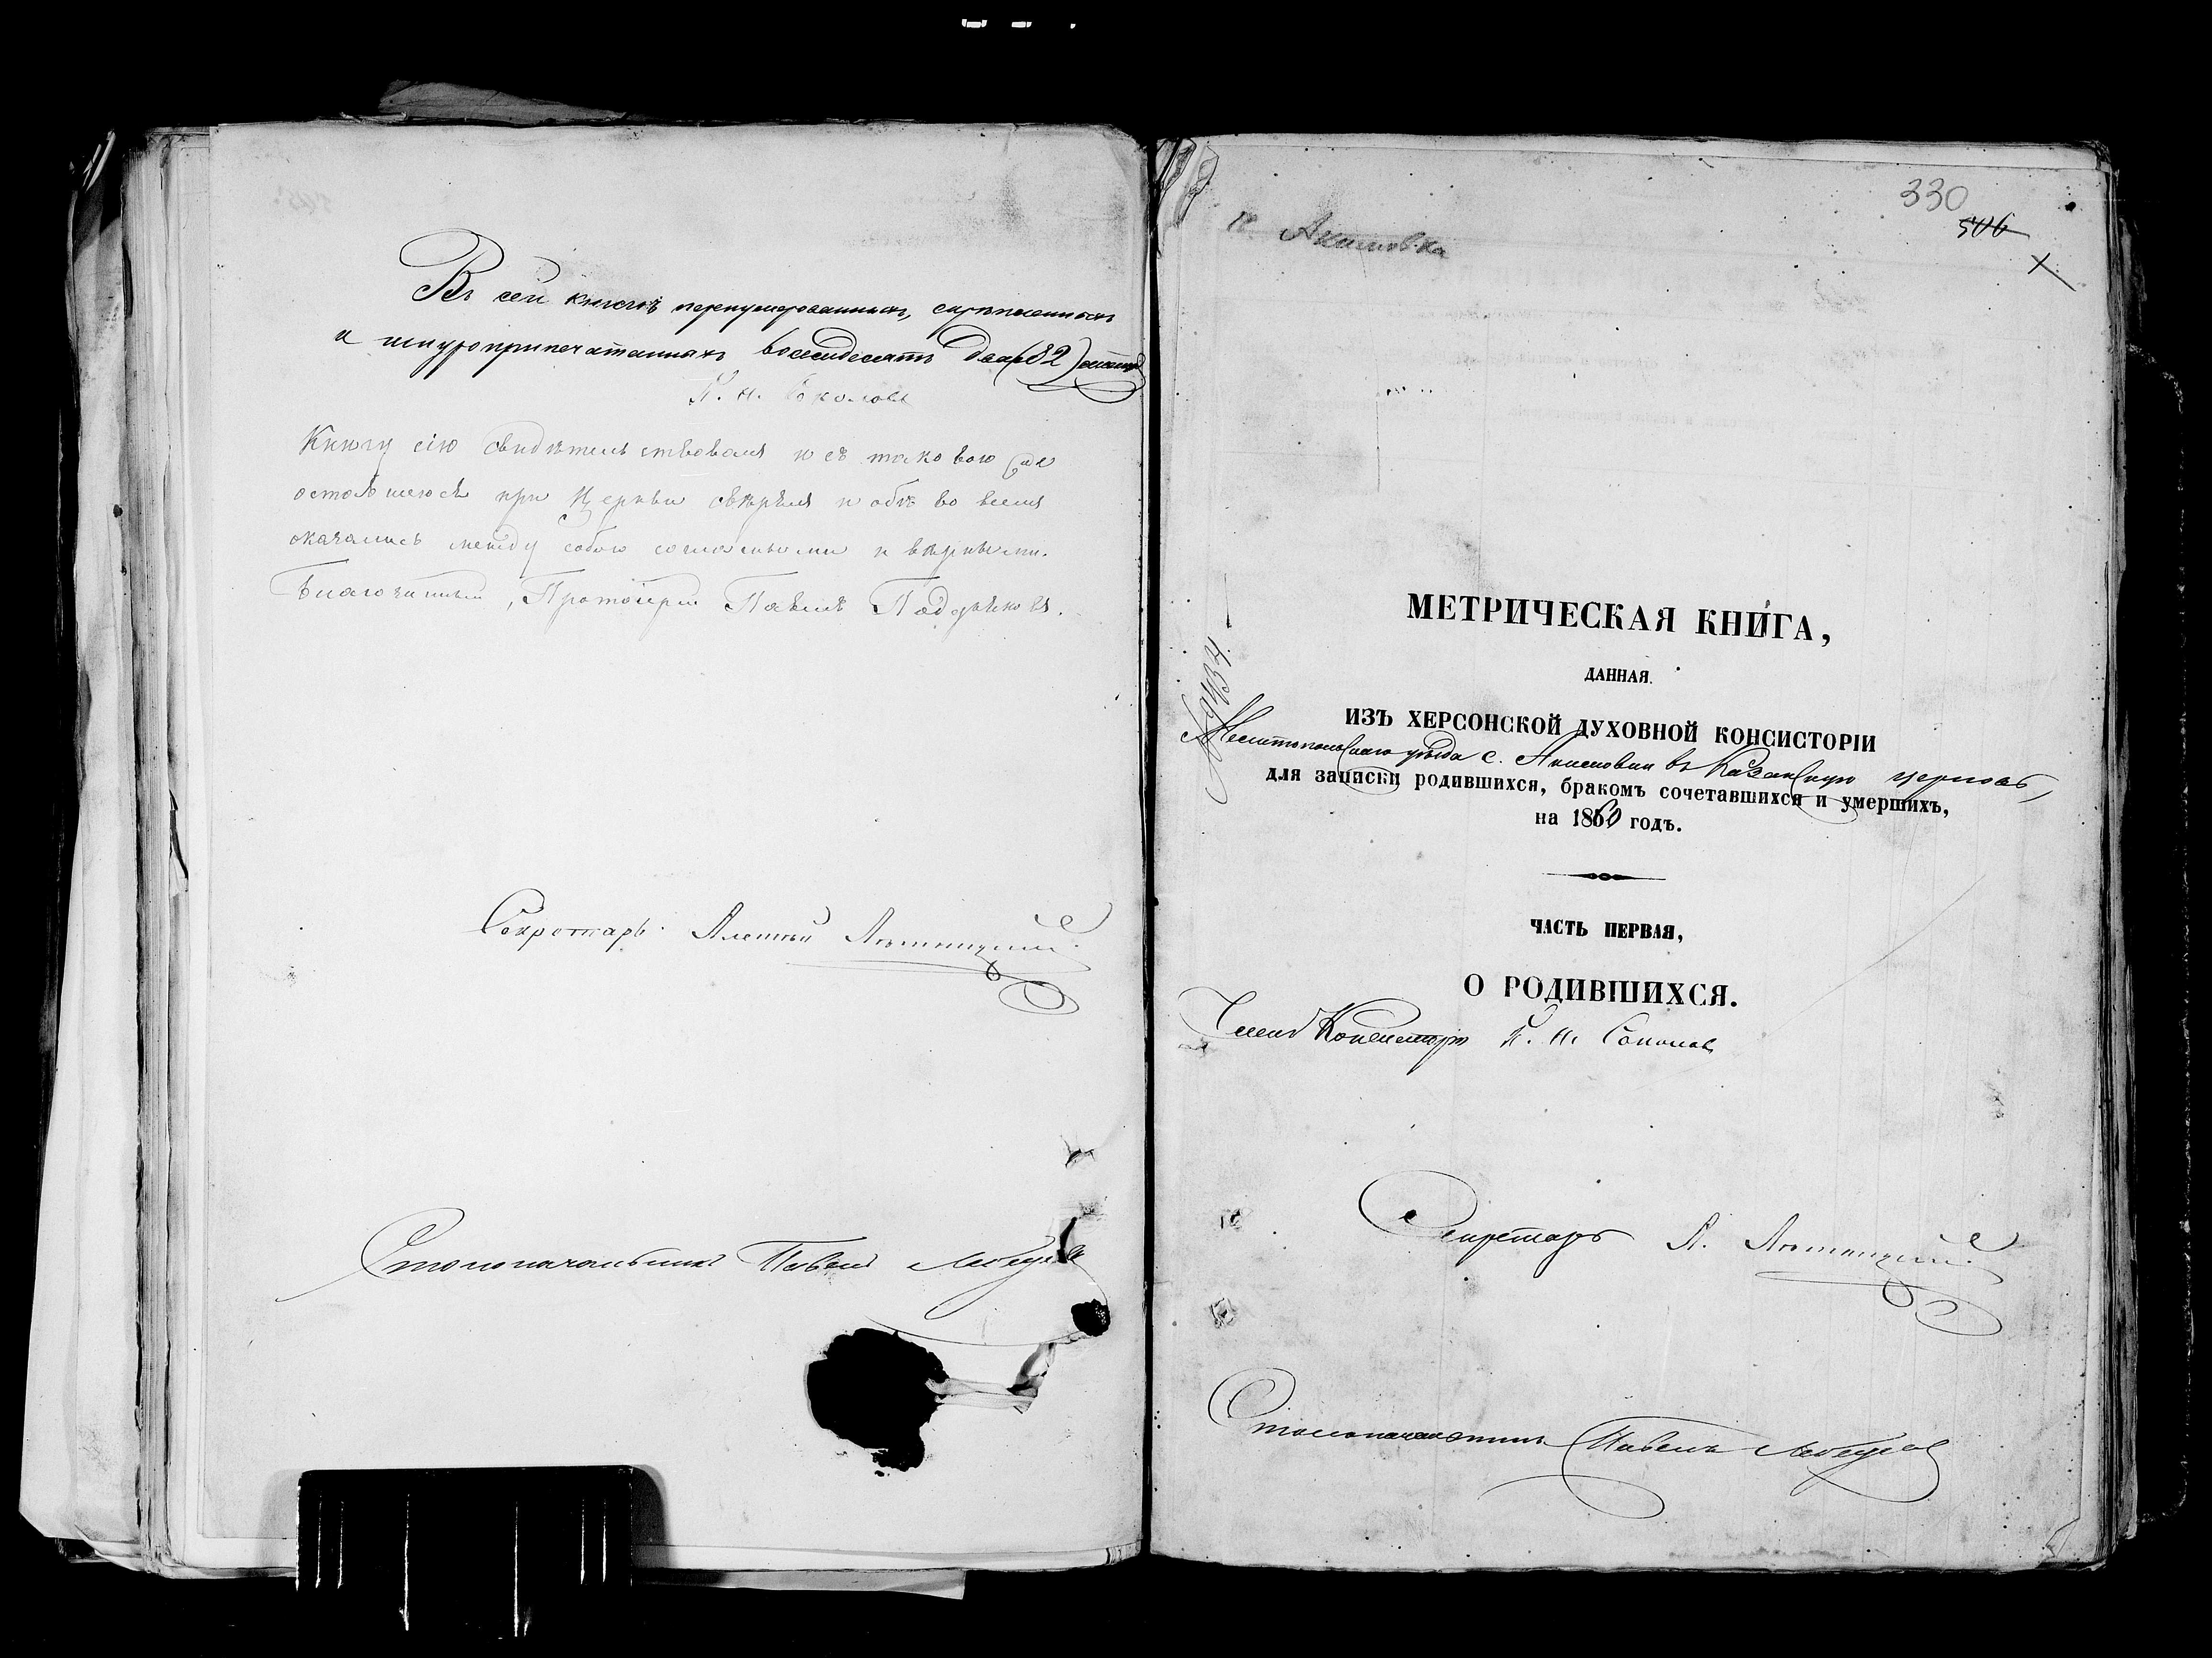 Въ сей книгѣ перенумерованныхъ, скрѣпленныхъ
и шнуроприпечатанныхъ восемьдесятъ два (82) листа
К. И. Соколовъ
Книгу сію свидѣтельствовалъ и съ таковою же
оставшеюся при Церкви свѣрялъ и обѣ во всемъ
оказались между собою согласными и вѣрными.
Благочинный, Протоіерей Павелъ
Секретарь Алексѣй
Столоначальникъ Павелъ
330
506
с. Акимовка
МЕТРИЧЕСКАЯ КНИГА,
ДАННАЯ
ИЗЪ ХЕРСОНСКОЙ ДУХОВНОЙ КОНСИСТОРІИ
Мелитопольскаго уѣзда с. Акимовки въ Казанскую церковь,
для записки родившихся, бракомъ сочетавшихся и умершихъ,
на 1860 годъ.
ЧАСТЬ ПЕРВАЯ,
О РОДИВШИХСЯ.
Членъ Консисторіи К. И. Соколовъ
Секретарь А.
Столоначальникъ Павелъ